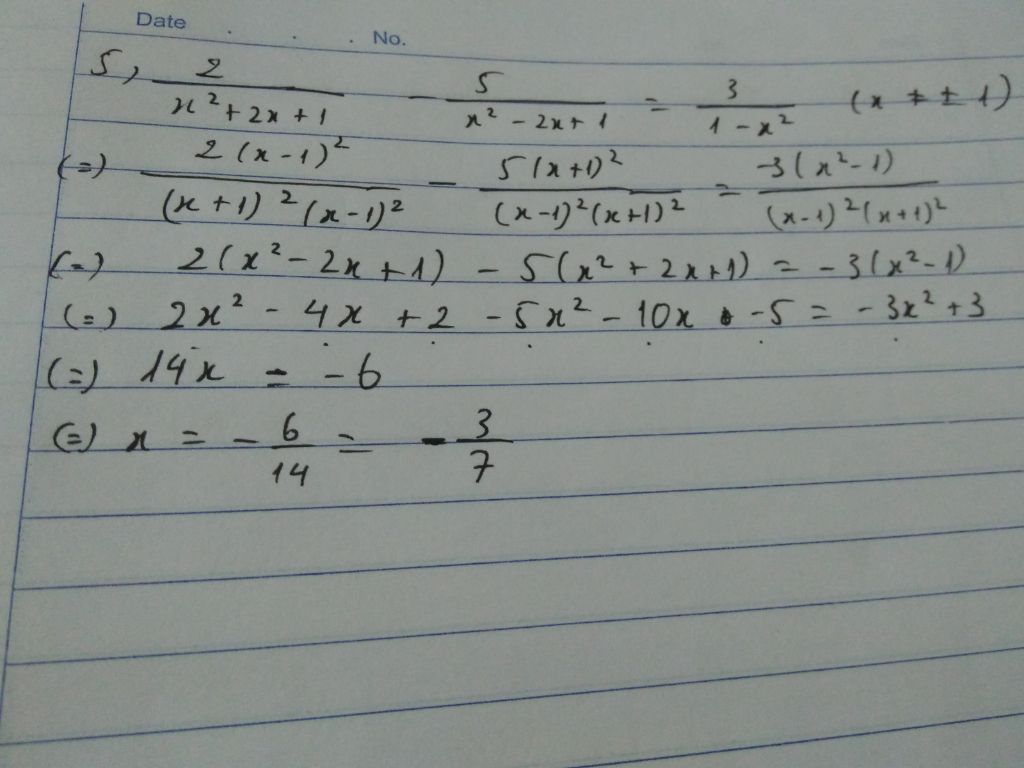 Date . . . No.
5, 2/(x² + 2x + 1) - 5/(x² - 2x + 1) = 3/(1 - x²) (x ≠ ± 1)
(=) 2(x-1)²/((x+1)²(x-1)²) - 5(x+1)²/((x-1)²(x+1)²) = -3(x²-1)/((x-1)²(x+1)²)
(=) 2(x² - 2x + 1) - 5(x² + 2x + 1) = -3(x² - 1)
(=) 2x² - 4x + 2 - 5x² - 10x - 5 = -3x² + 3
(=) 14x = -6
(=) x = - 6/14 = - 3/7